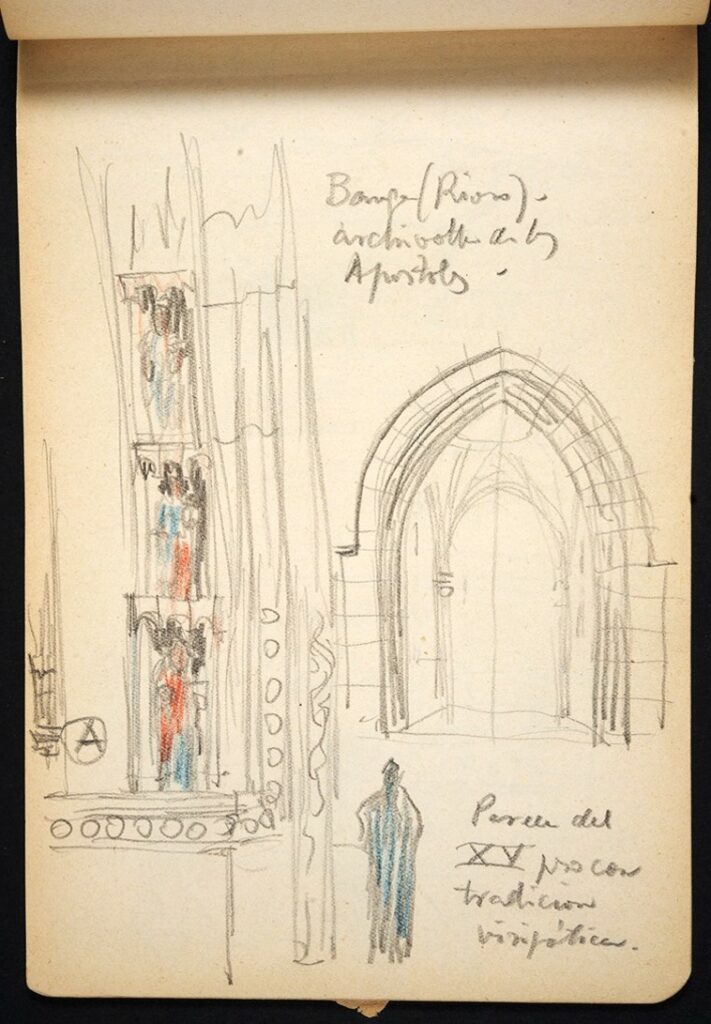 (Rioro).
archivolta de los
Apostoles.
A
Parece del
XV pro con
tradicion
visigótica.